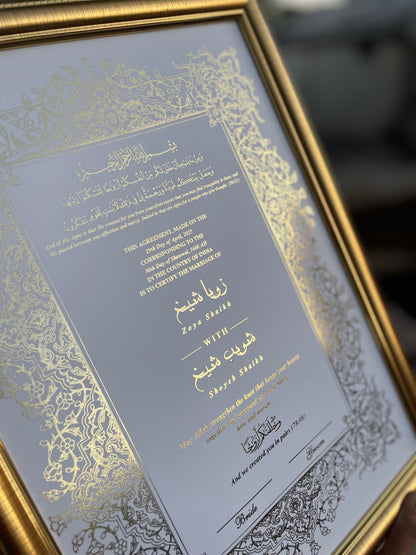 بسم الله الرحمن الرحيم
And of His signs is that He created for you from yourselves mates that you may find tranquility in them; and
He placed between you affection and mercy. Indeed in that are signs for a people who give thought. (30:21)
THIS AGREEMENT, MADE ON THE
29th Day of April, 2025
CORRESPONDING TO THE
30th Day of Shawwal, 1446 AH
IN THE COUNTRY OF INDIA
IS TO CERTIFY THE MARRIAGE OF
زويا شيخ
Zoya Shaikh
WITH
شويب شيخ
Shoyeb Shaikh
May Allah strengthen the knot that keeps your hearts
together and surround you with
love and
وخلقناكم أزواجا
And we created you in pairs (78:08)
Bride
Groom